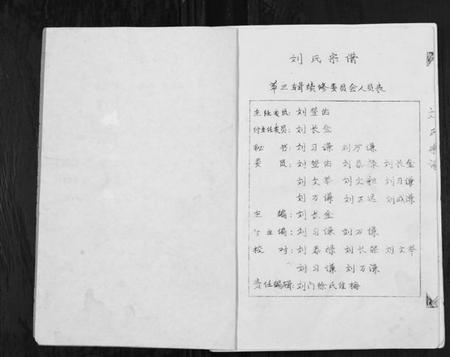 刘氏宗谱
第三辑续修委员会人员表
主任委员：刘登由
付主任委员：刘长金
秘书：刘习谦 刘万谦
委员：刘登由 刘春 刘长金
刘文 刘文 刘习谦
刘万谦 刘万 刘成谦
主编：刘长金
付主编：刘习谦 刘万谦
校对：刘春 刘长 刘文
刘习谦 刘万谦
责任编辑：刘门徐氏佳梅
刘氏宗谱